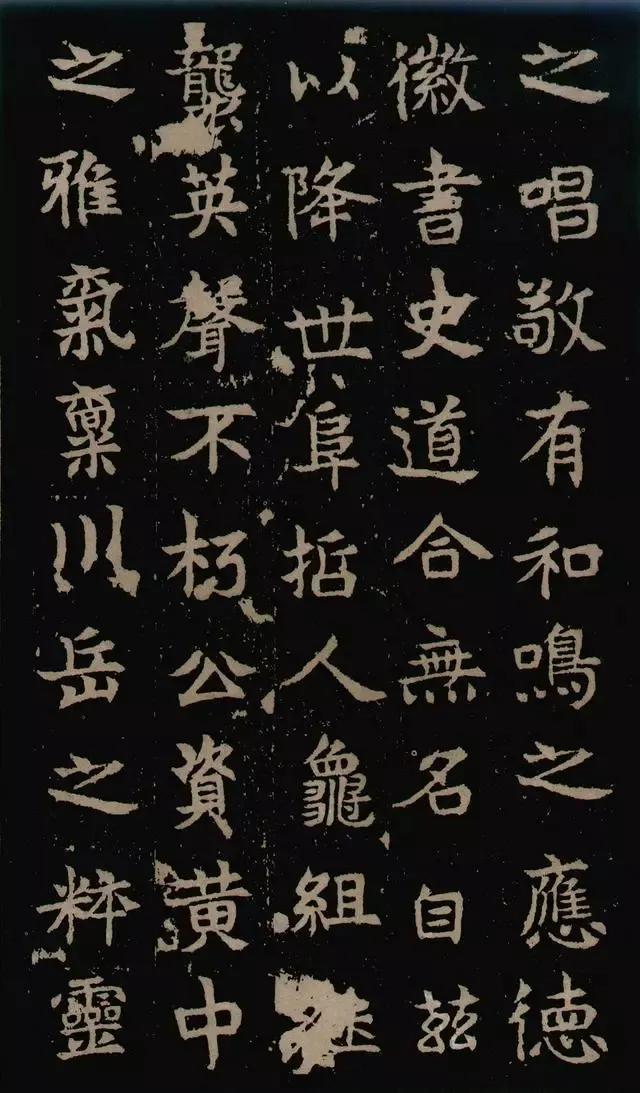 之唱敬有和鳴之應德
徽書史道合無名自茲
以降世阜哲人龜組継
襲英聲不朽公資黄中
之雅氣稟川岳之粹靈